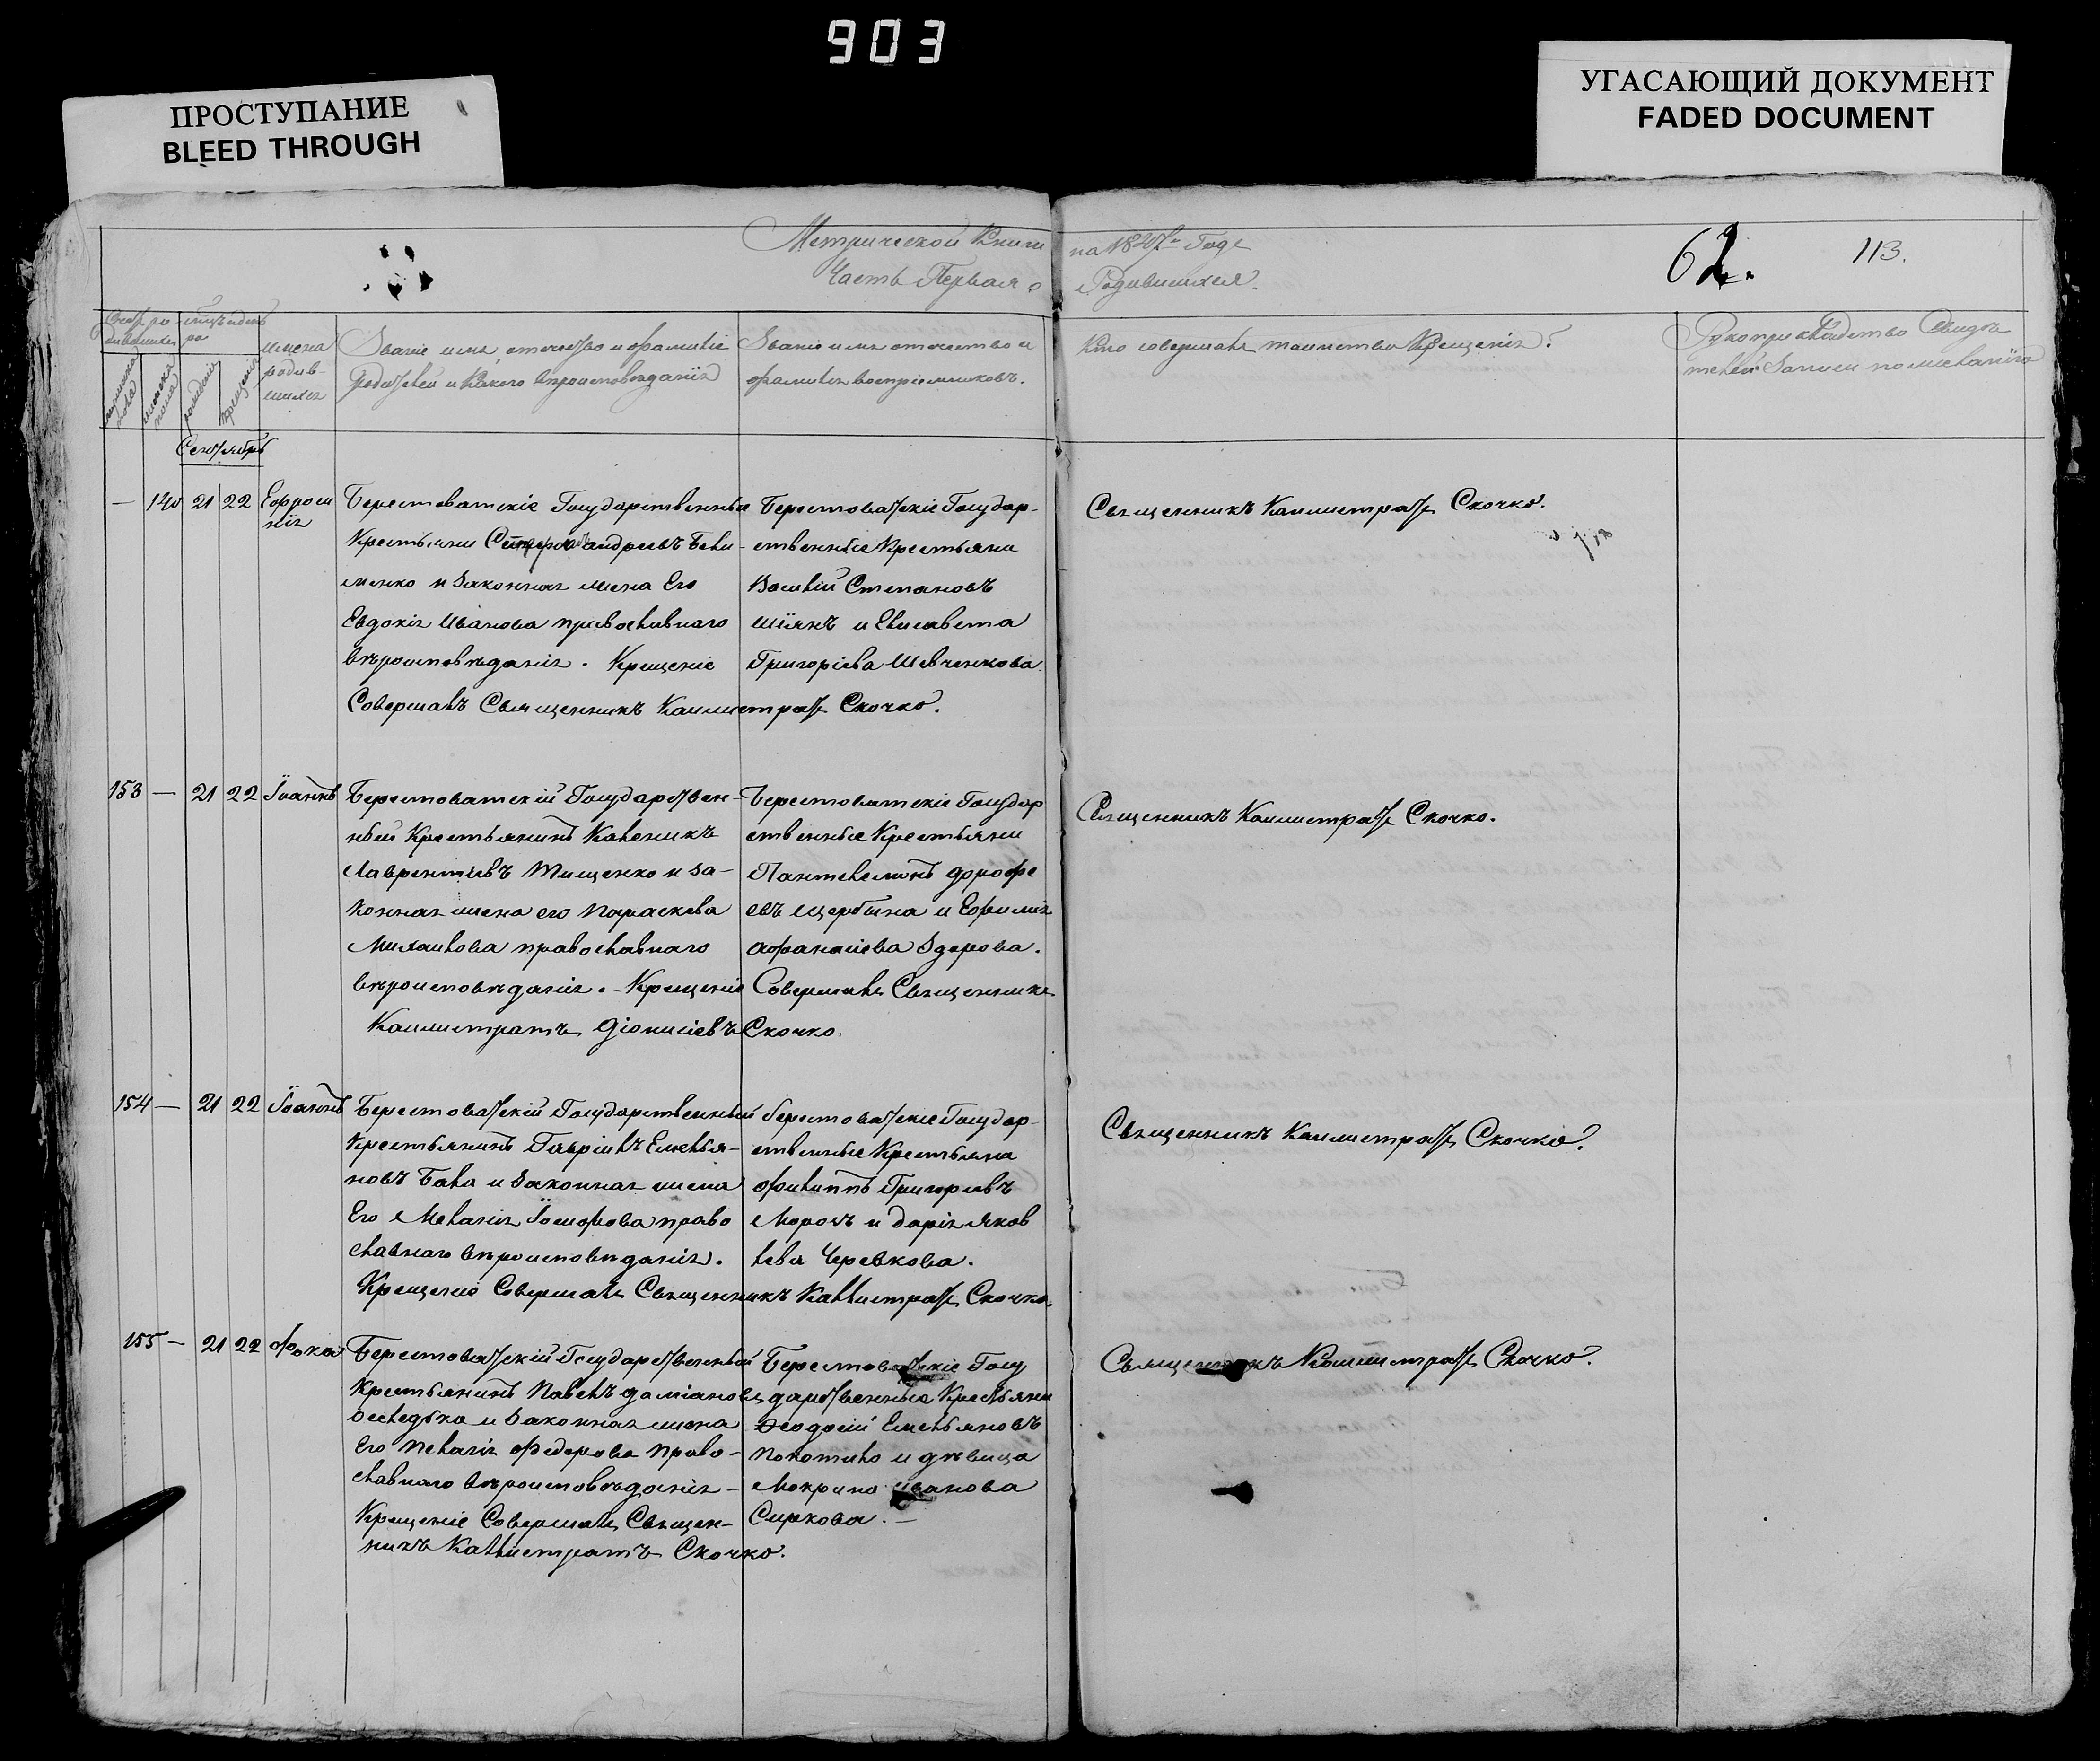 903
ПРОСТУПАНИЕ
BLEED THROUGH
УГАСАЮЩИЙ ДОКУМЕНТ
FADED DOCUMENT
Метрической Книги на 1847го Годъ
Часть Первая о Родившихся.
62.
113.
имена родив-шихся
Званіе имя отечество и фамиліе
родителей и какого вѣроисповѣданія
Званіе имя отечество и
фамилія воспріемниковъ.
Кто совершалъ таинство Крещенія?
Рукоприкладство Свидѣ
телей Записи по желанію
мужеска пола
женска пола
рожденія
крещенія
Сентябрь
— 140 21 22 Ефроси
нія
Берестоватскіе Государственные
Крестьяне андреевъ Бели-
менко и Законная жена Его
Евдокія Иванова православнаго
вѣроисповѣданія. Крещеніе
Совершалъ Священникъ Каллистратъ Скочко.
Берестоватскіе Государ-
ственные Крестьяне
Василій Степановъ
Шіянъ и Елисавета
Григоріева Шевченкова.
Священникъ Каллистратъ Скочко.
153 — 21 22 Іоаннъ
Берестоватскій Государствен-
ный Крестьянинъ Каленикъ
Лаврентіевъ Тищенко и за-
конная жена его Параскева
Михаилова православнаго
вѣроисповѣданія. - Крещеніе Совершалъ Священникъ
Каллистратъ Діонисіевъ Скочко.
Берестоватскіе Государ
ственные Крестьяне
Пантелеймонъ дорофе
евъ Щербина и Ефимія
афанасіева Здорова.
Священникъ Каллистратъ Скочко.
154 — 21 22 Іоаннъ
Берестоватскій Государственный
Крестьянинъ Гавріилъ Емелья-
новъ Бала и Законная жена
Его Меланія Іосифова право
славнаго вѣроисповѣданія.
Крещеніе Совершалъ Священникъ Каллистратъ Скочко.
Берестоватскіе Государ-
ственные Крестьяне
Филиппъ Григорьевъ
Морозъ и дарія Яков
лева Черевкова.
Священникъ Каллистратъ Скочко.
155 — 21 22 Фока
Берестоватскій Государственный
Крестьянинъ Павелъ даміановъ
Оселедько и Законная жена
Его Пелагія Федорова Право-
славнаго вѣроисповѣданія -
Крещеніе Совершалъ Священ-
никъ Каллистратъ Скочко.
Берестоватскіе Госу
дарственные Крестьяне
Феодосій Емельяновъ
Покотило и дѣвица
Мокрина Иванова
Сиркова. —
Священникъ Каллистратъ Скочко.